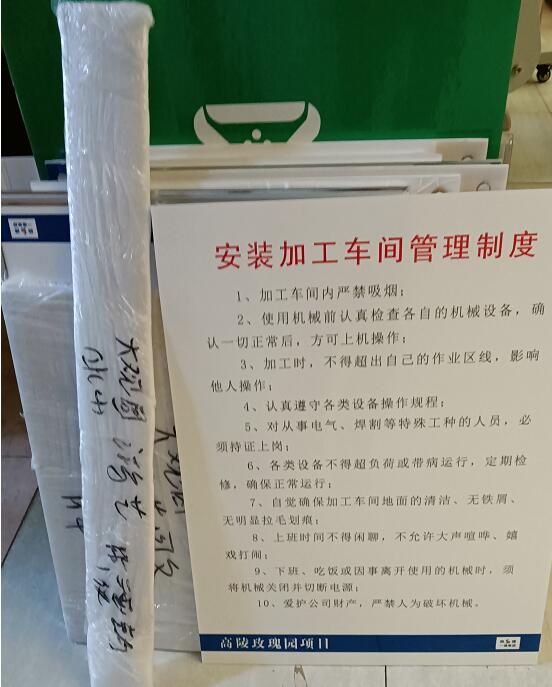 安装加工车间管理制度
1、加工车间内严禁吸烟；
2、使用机械前认真检查各自的机械设备，确
认一切正常后，方可上机操作；
3、加工时，不得超出自己的作业区线，影响
他人操作；
4、认真遵守各类设备操作规程；
5、对从事电气、焊割等特殊工种的人员，必
须持证上岗；
6、各类设备不得超负荷或带病运行，定期检
修，确保正常运行；
7、自觉确保加工车间地面的清洁、无铁屑、
无明显拉毛划痕；
8、上班时间不得闲聊，不允许大声喧哗、嬉
戏打闹；
9、下班、吃饭或因事离开使用的机械时，须
将机械关闭并切断电源；
10、爱护公司财产，严禁人为破坏机械。
高陵玫瑰园项目